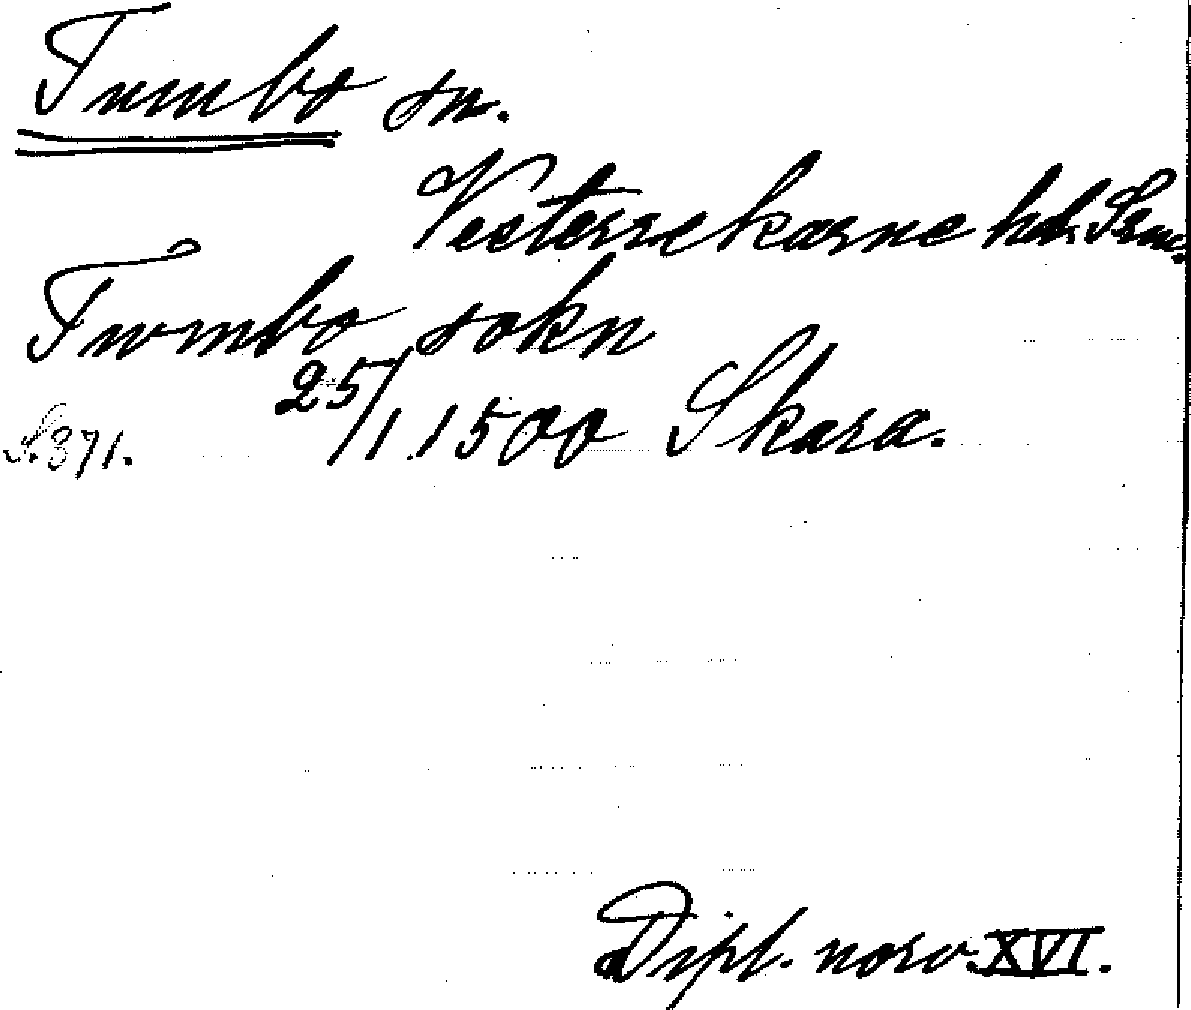 Tumbo sn.
Vesterrekarne hd. Srm.
Tumbo sokn
25/1 1500 Skara.
S. 371.
Dipl. norv. XVI.